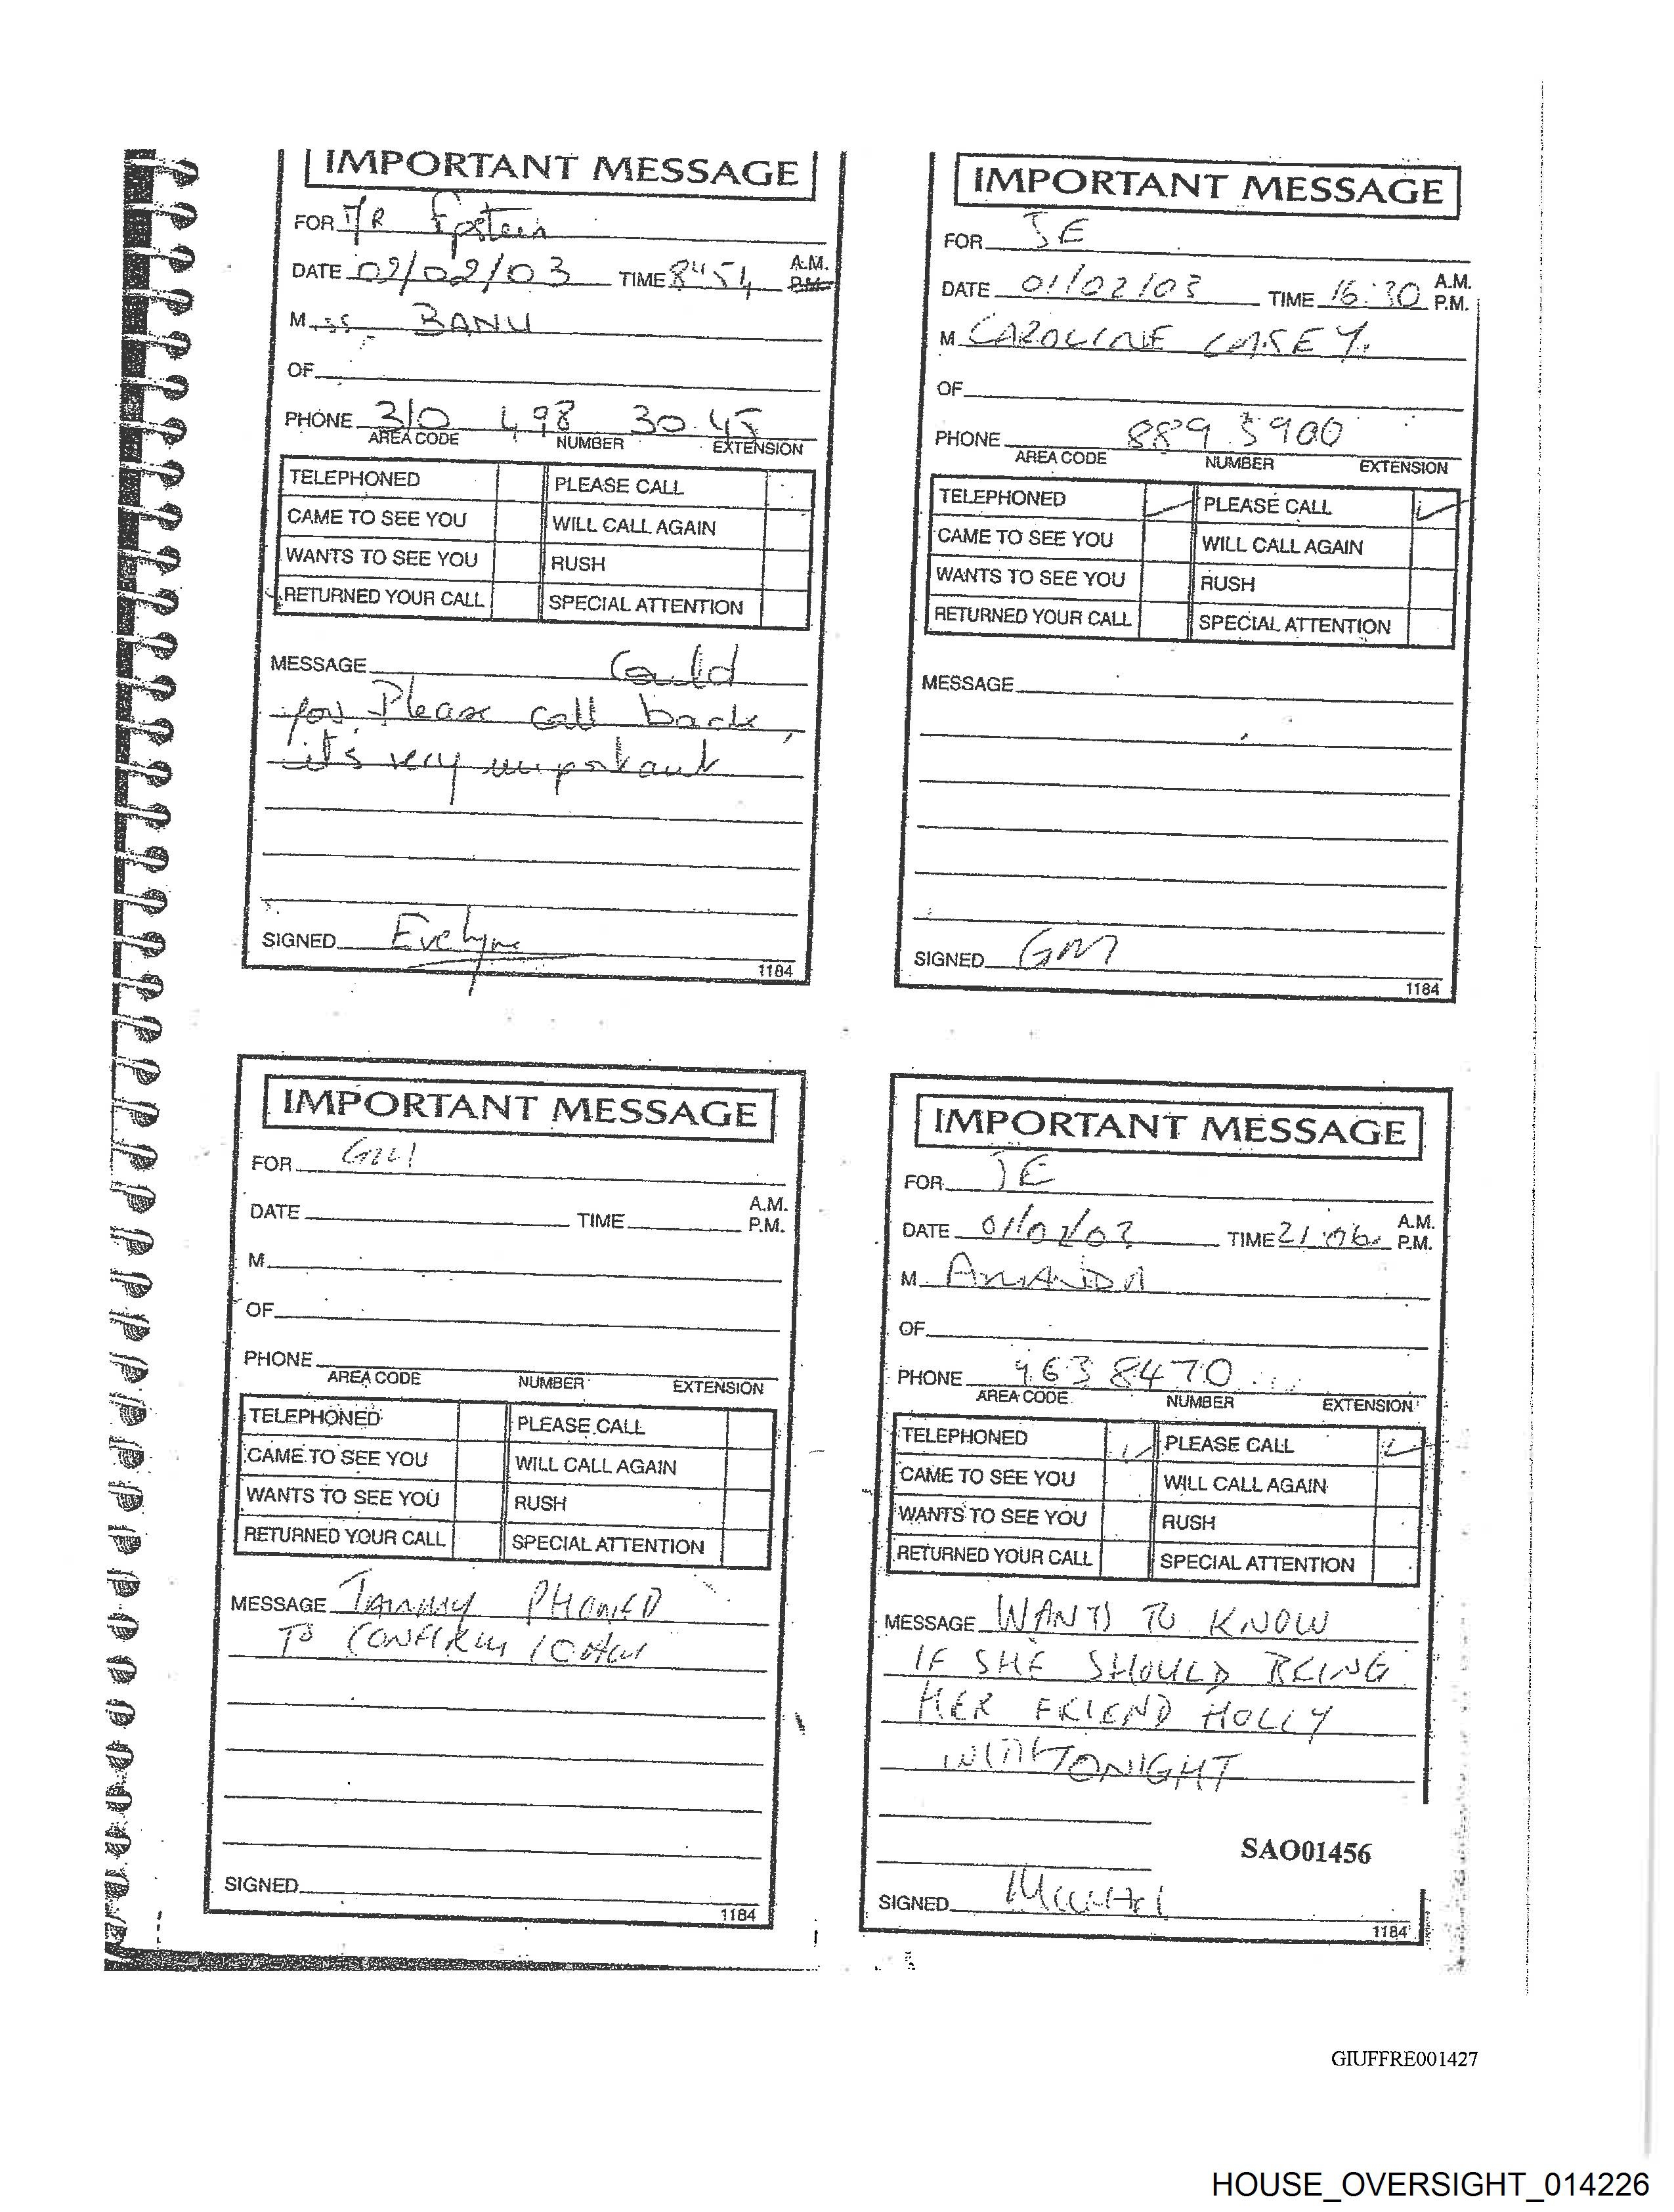 IMPORTANT MESSAGE
FOR MR Epstein
DATE 02/02/03 TIME 8"54 A.M. P.M.
M ss. BANU
OF
PHONE 310 498 30.45
AREA CODE NUMBER EXTENSION
TELEPHONED PLEASE CALL
CAME TO SEE YOU WILL CALL AGAIN
WANTS TO SEE YOU RUSH
RETURNED YOUR CALL SPECIAL ATTENTION
MESSAGE Could
you Please call back,
it's very important
SIGNED Evelyne
1184
IMPORTANT MESSAGE
FOR JE
DATE 01/02/03 TIME 16:30 A.M. P.M.
M CAROLINE CASEY.
OF
PHONE 889 5900
AREA CODE NUMBER EXTENSION
TELEPHONED PLEASE CALL
CAME TO SEE YOU WILL CALL AGAIN
WANTS TO SEE YOU RUSH
RETURNED YOUR CALL SPECIAL ATTENTION
MESSAGE
SIGNED GM
1184
IMPORTANT MESSAGE
FOR
DATE TIME A.M. P.M.
M
OF
PHONE
AREA CODE NUMBER EXTENSION
TELEPHONED PLEASE CALL
CAME TO SEE YOU WILL CALL AGAIN
WANTS TO SEE YOU RUSH
RETURNED YOUR CALL SPECIAL ATTENTION
MESSAGE TAMMY PHONED
TO CONFIRM
SIGNED
1184
IMPORTANT MESSAGE
FOR JE
DATE 01/02/03 TIME 21:06 A.M. P.M.
M AMANDA
OF
PHONE 963 8470
AREA CODE NUMBER EXTENSION
TELEPHONED PLEASE CALL
CAME TO SEE YOU WILL CALL AGAIN
WANTS TO SEE YOU RUSH
RETURNED YOUR CALL SPECIAL ATTENTION
MESSAGE WANTS TO KNOW
IF SHE SHOULD BRING
HER FRIEND HOLLY
TONIGHT
SAO01456
SIGNED
1184
GIUFFRE001427
HOUSE_OVERSIGHT_014226